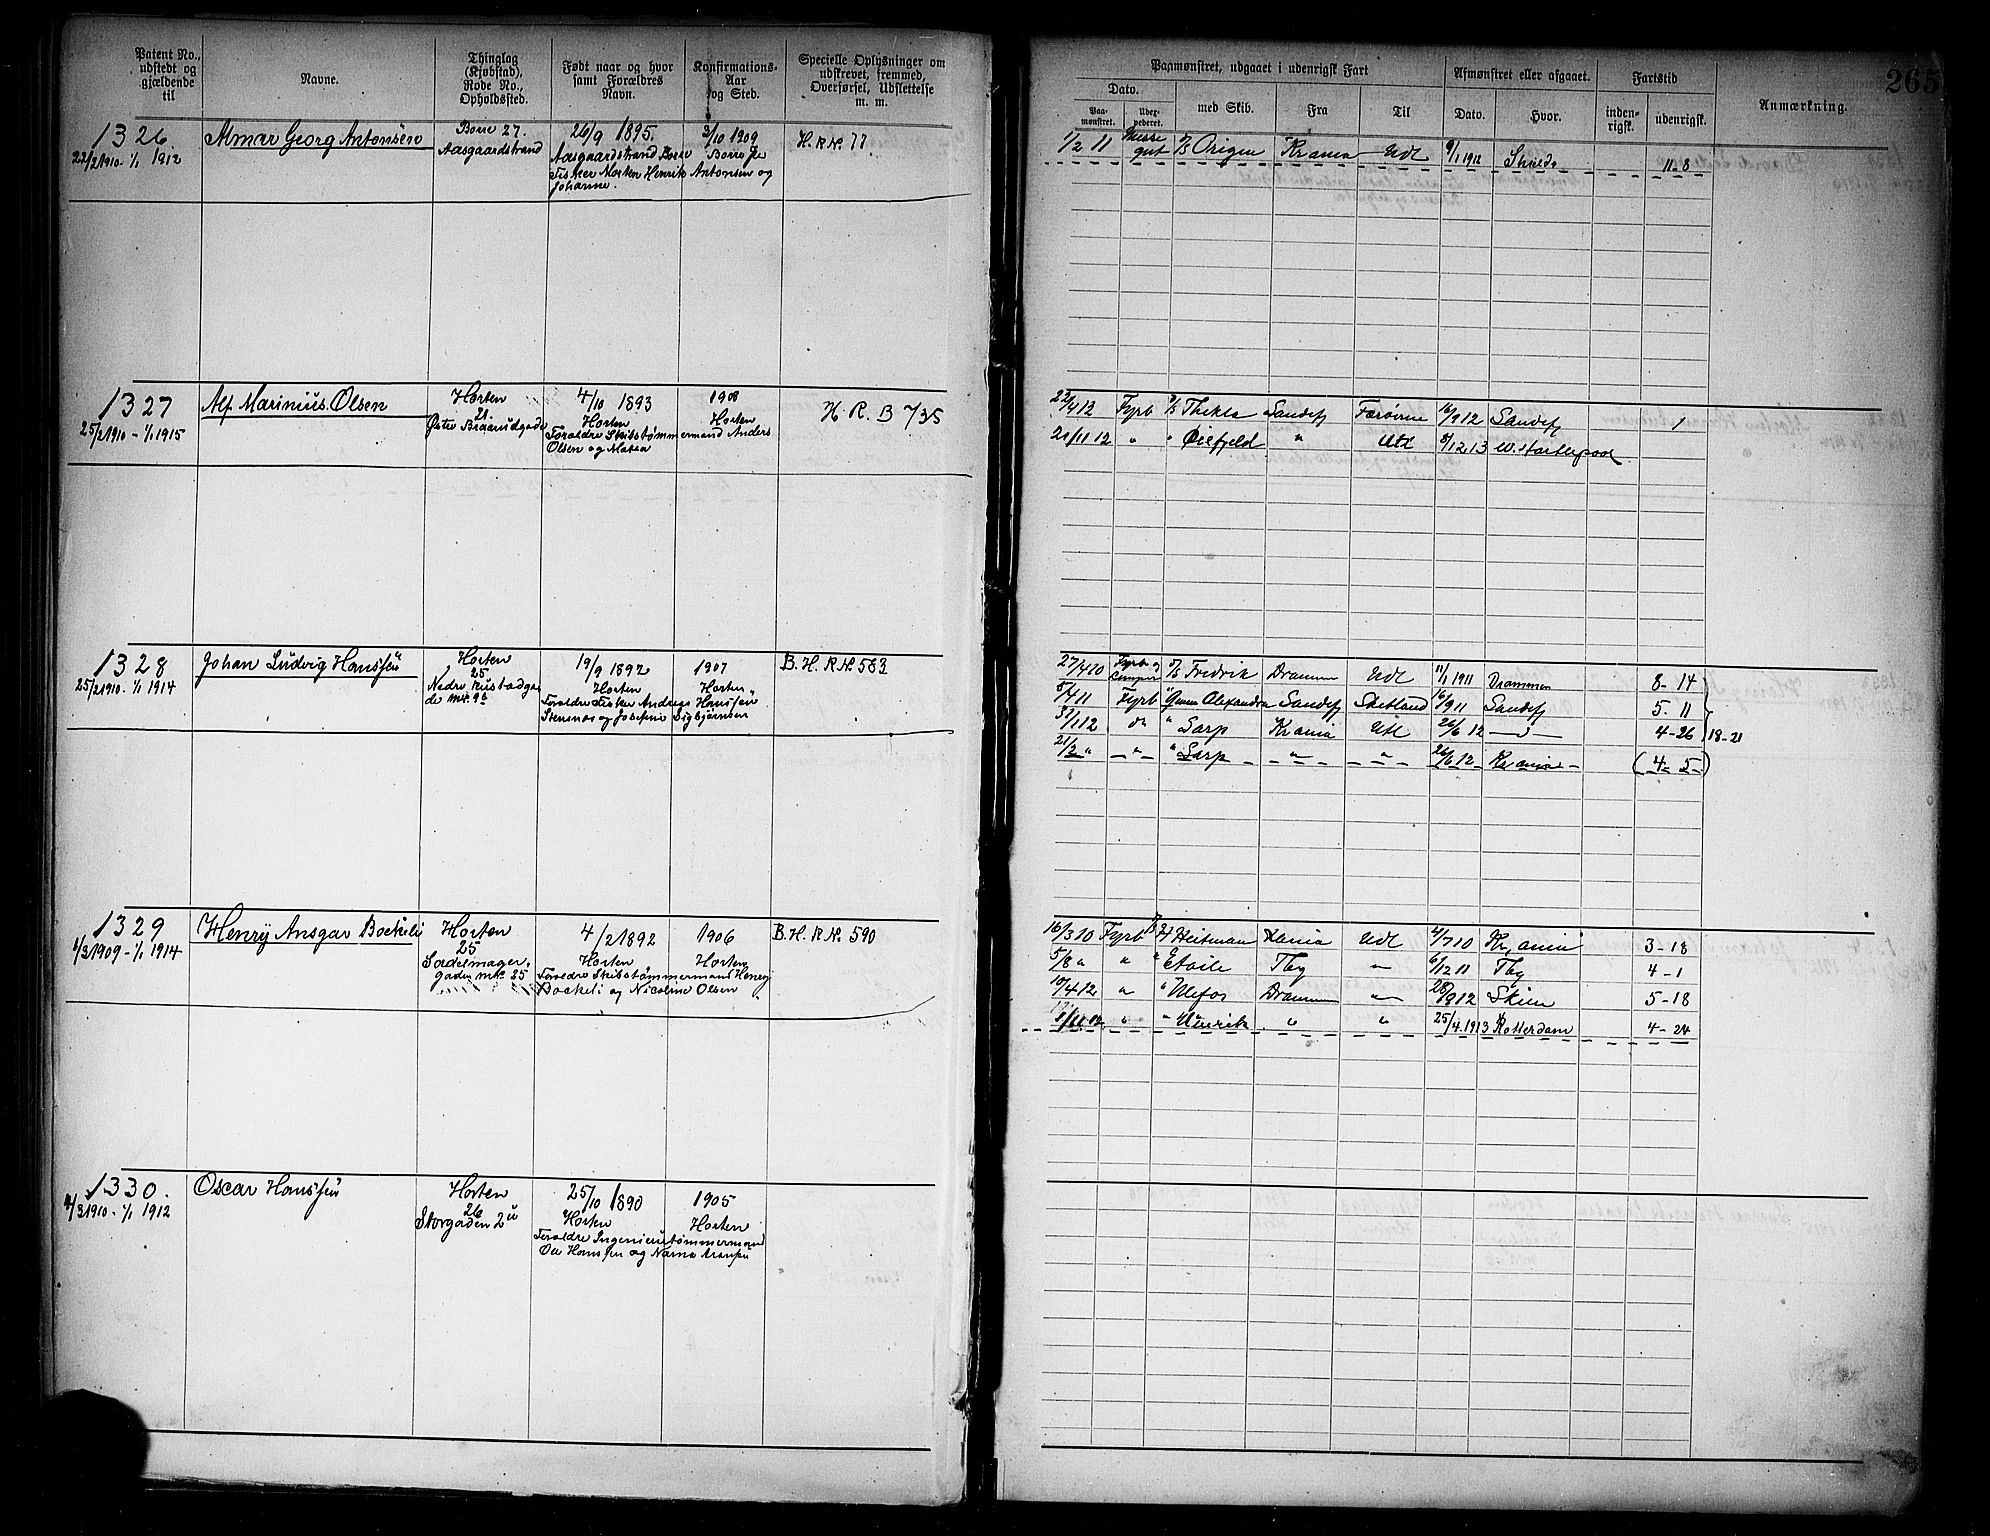 Patent No., udstedt og gjældende til
Navne.
Thinglag (Kjøbstad), Rode No., Opholdssted.
Født naar og hvor samt Forældres Navn.
Konfirmations-Aar og Sted.
Specielle Oplysninger om udskrevet, fremmed, Overførsel, Udslettelse m. m.
Paamønstret, udgaaet i udenrigsk Fart
Afmønstret eller afgaaet.
Fartstid
Anmærkning.
265
Dato.
Paa-mønstret.
Udex-pederet.
med Skib.
Fra
Til
Dato.
Hvor.
inden-rigsk.
udenrigsk.
1326.
22/2 1910 - 1/1 1912
Almar Georg Antonsen
Borre 27.
Aasgaardstrand
26/9 1895.
Aasgaardstrand Borre
Fisker Morten Henrik Antonsen og
Johanne.
3/10 1909
Borre
H.R.N. 77
1/2 11 Messegut Origen Krania Udl 9/1 1912 11-8
1327
25/2 1910 - 1/1 1915
Alf Marinius Olsen
Horten
21
Østre Braarudgade
4/10 1893
Horten
Foreldre Skibstømmermand Anders
Olsen og Matea
1908
Horten
H. R. B 735
22/4 12 Fyrb Thekla Sandefj Færøirne 14/9 12 Sandefj 1
21/11 12 " " Oiefjeld " Utl 8/12 13 W. Hartlepool
1328
25/2 1910 - 1/1 1914
Johan Ludvig Hansen
Horten
25
Nedre Keisegade
19/9 1892
Horten
Foreldre Fisker Andreas Hansen
Stensnæs og Josefine Sigbjørnsen
1907
Horten
B.H.R.N. 583
27/4 10 Fyrb og Fredrik Drammen Udl 11/1 1911 Drammen 8-14
8/4 11 Fyrb " Alexandra Sandefj Shetland 16/9 11 Sandefj 5-11
3/1 12 do " Sarp Krania Utl 26/6 12 4-26 18-21
21/2 " " " Sarp " " 26/6 12 Krania (4-5)
1329
1/3 1909 - 1/1 1914
Henry Ansgar Bockeli
Horten
25
Sadelmager-
gaden mtr 25
4/2 1892
Horten
Foreldre Skibstømmermand Henry
Bockeli og Nicoline Olsen
1906
Horten
B.H.R.N. 590
16/3 10 Fyrb Heitman Krania Udl 4/7 10 Krania 3-18
5/8 " " " Etoile Tbg " 6/12 11 Tbg 4-1
10/4 12 " " Ulefos Drammen " 28/9 12 Skien 5-18
1/11 12 " " Unrik " " 25/4 1913 Rotterdam 4-24
1330.
4/3 1910 - 1/1 1912
Oscar Hansen
Horten
26
Storgaden 2
25/10 1890
Horten
Foreldre Ingeniørtømmermand
Ole Hansen og
1905
Horten